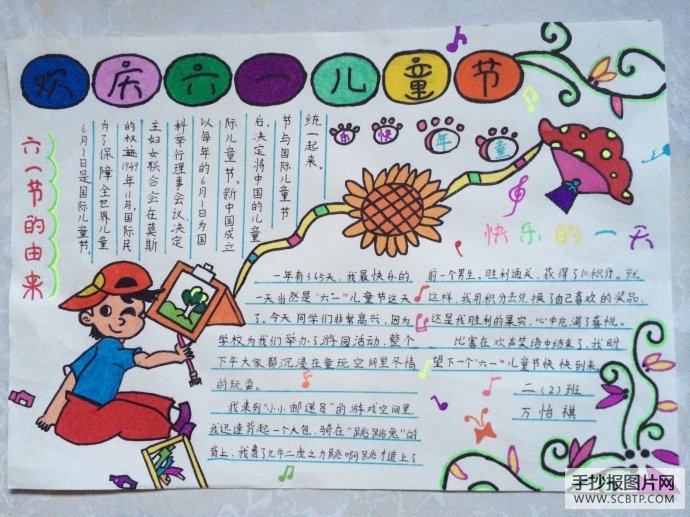 欢庆六一儿童节
六一节的由来
6月1日是国际儿童节,
为了保障全世界儿童
的权益1949年11月,国际民
主妇女联合会在莫斯
科举行理事会议,决定
以每年的6月1日为国
际儿童节。新中国成立
后,决定将中国的儿童
节与国际儿童节
统一起来。
乐快年童
快乐的一天
一年有365天,我最快乐的
一天当然是“六一”儿童节这天
了,今天同学们非常高兴,因为
学校为我们举办了游园活动,整个
下午大家都沉浸在童玩空间里尽情
的玩耍。
我来到“小小邮递员”的游戏空间里,
我迅速背起一个大包,骑在“跳跳兔”的
背上,我费了九牛二虎之力跳啊跳才追上了
前一个男生,胜利通关,获得了10积分。就
这样,我用积分去兑换了自己喜欢的奖品,
这是我胜利的果实,心中充满了喜悦。
比赛在欢声笑语中结束了,我盼
望下一个“六一”儿童节快快到来。
二(2)班
万怡祺
手抄报图片网
WWW.SCBTP.COM